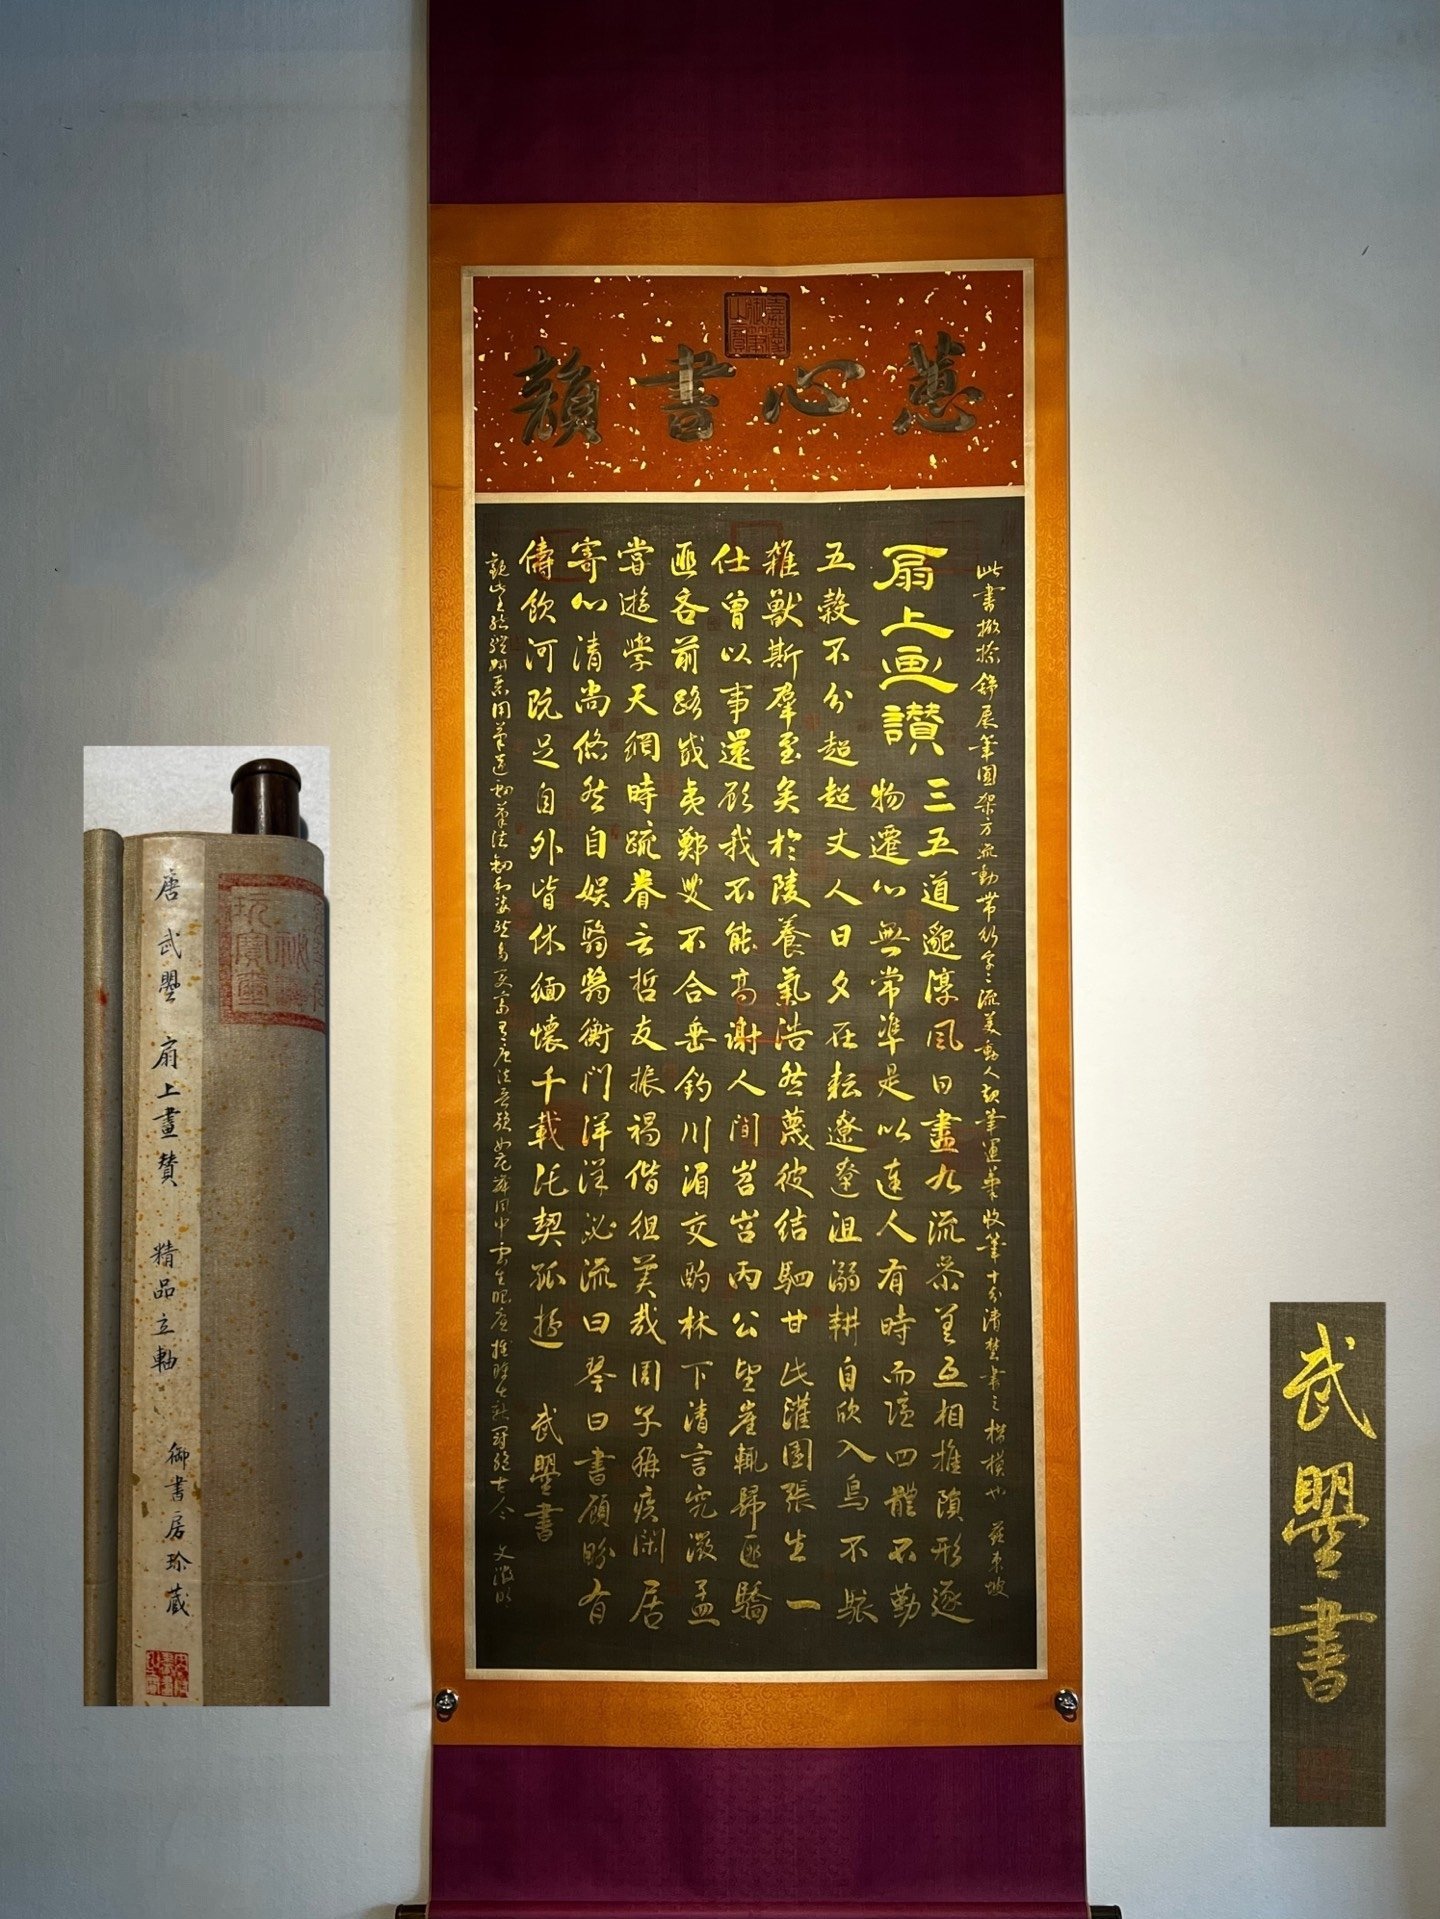 蕙心書韻
此書撇捺鋪展筆圓架方流動帶行字字流美動人起筆運筆收筆十分清楚書之楷模也 蘇東坡
扇上画讃
三五道邈淳風日盡九流參差互相推隕形逐
物遷心無常準是以達人有時而隱四體不勤
五穀不分超超丈人日夕在耘遼遼沮溺耕自欣入鳥不駭
雜獸斯羣至矣於陵養氣浩然蔑彼結駟甘此灌園張生一
仕曾以事還顧我不能高謝人間岧岧丙公望崖輒歸匪驕
匪吝前路威夷鄭叟不合垂釣川湄交酌林下清言究微孟
嘗遊學天網時疏眷言哲友振褐偕徂美哉周子稱疾閑居
寄心清尚悠然自娛翳翳衡門洋洋泌流曰琴曰書顧盼有
儔飲河既足自外皆休緬懷千載託契孤遊 武曌書
用筆遒勁筆法 冠絕古今 文徵明
唐 武曌 扇上畫賛 精品立軸 御書房珍藏
武曌書